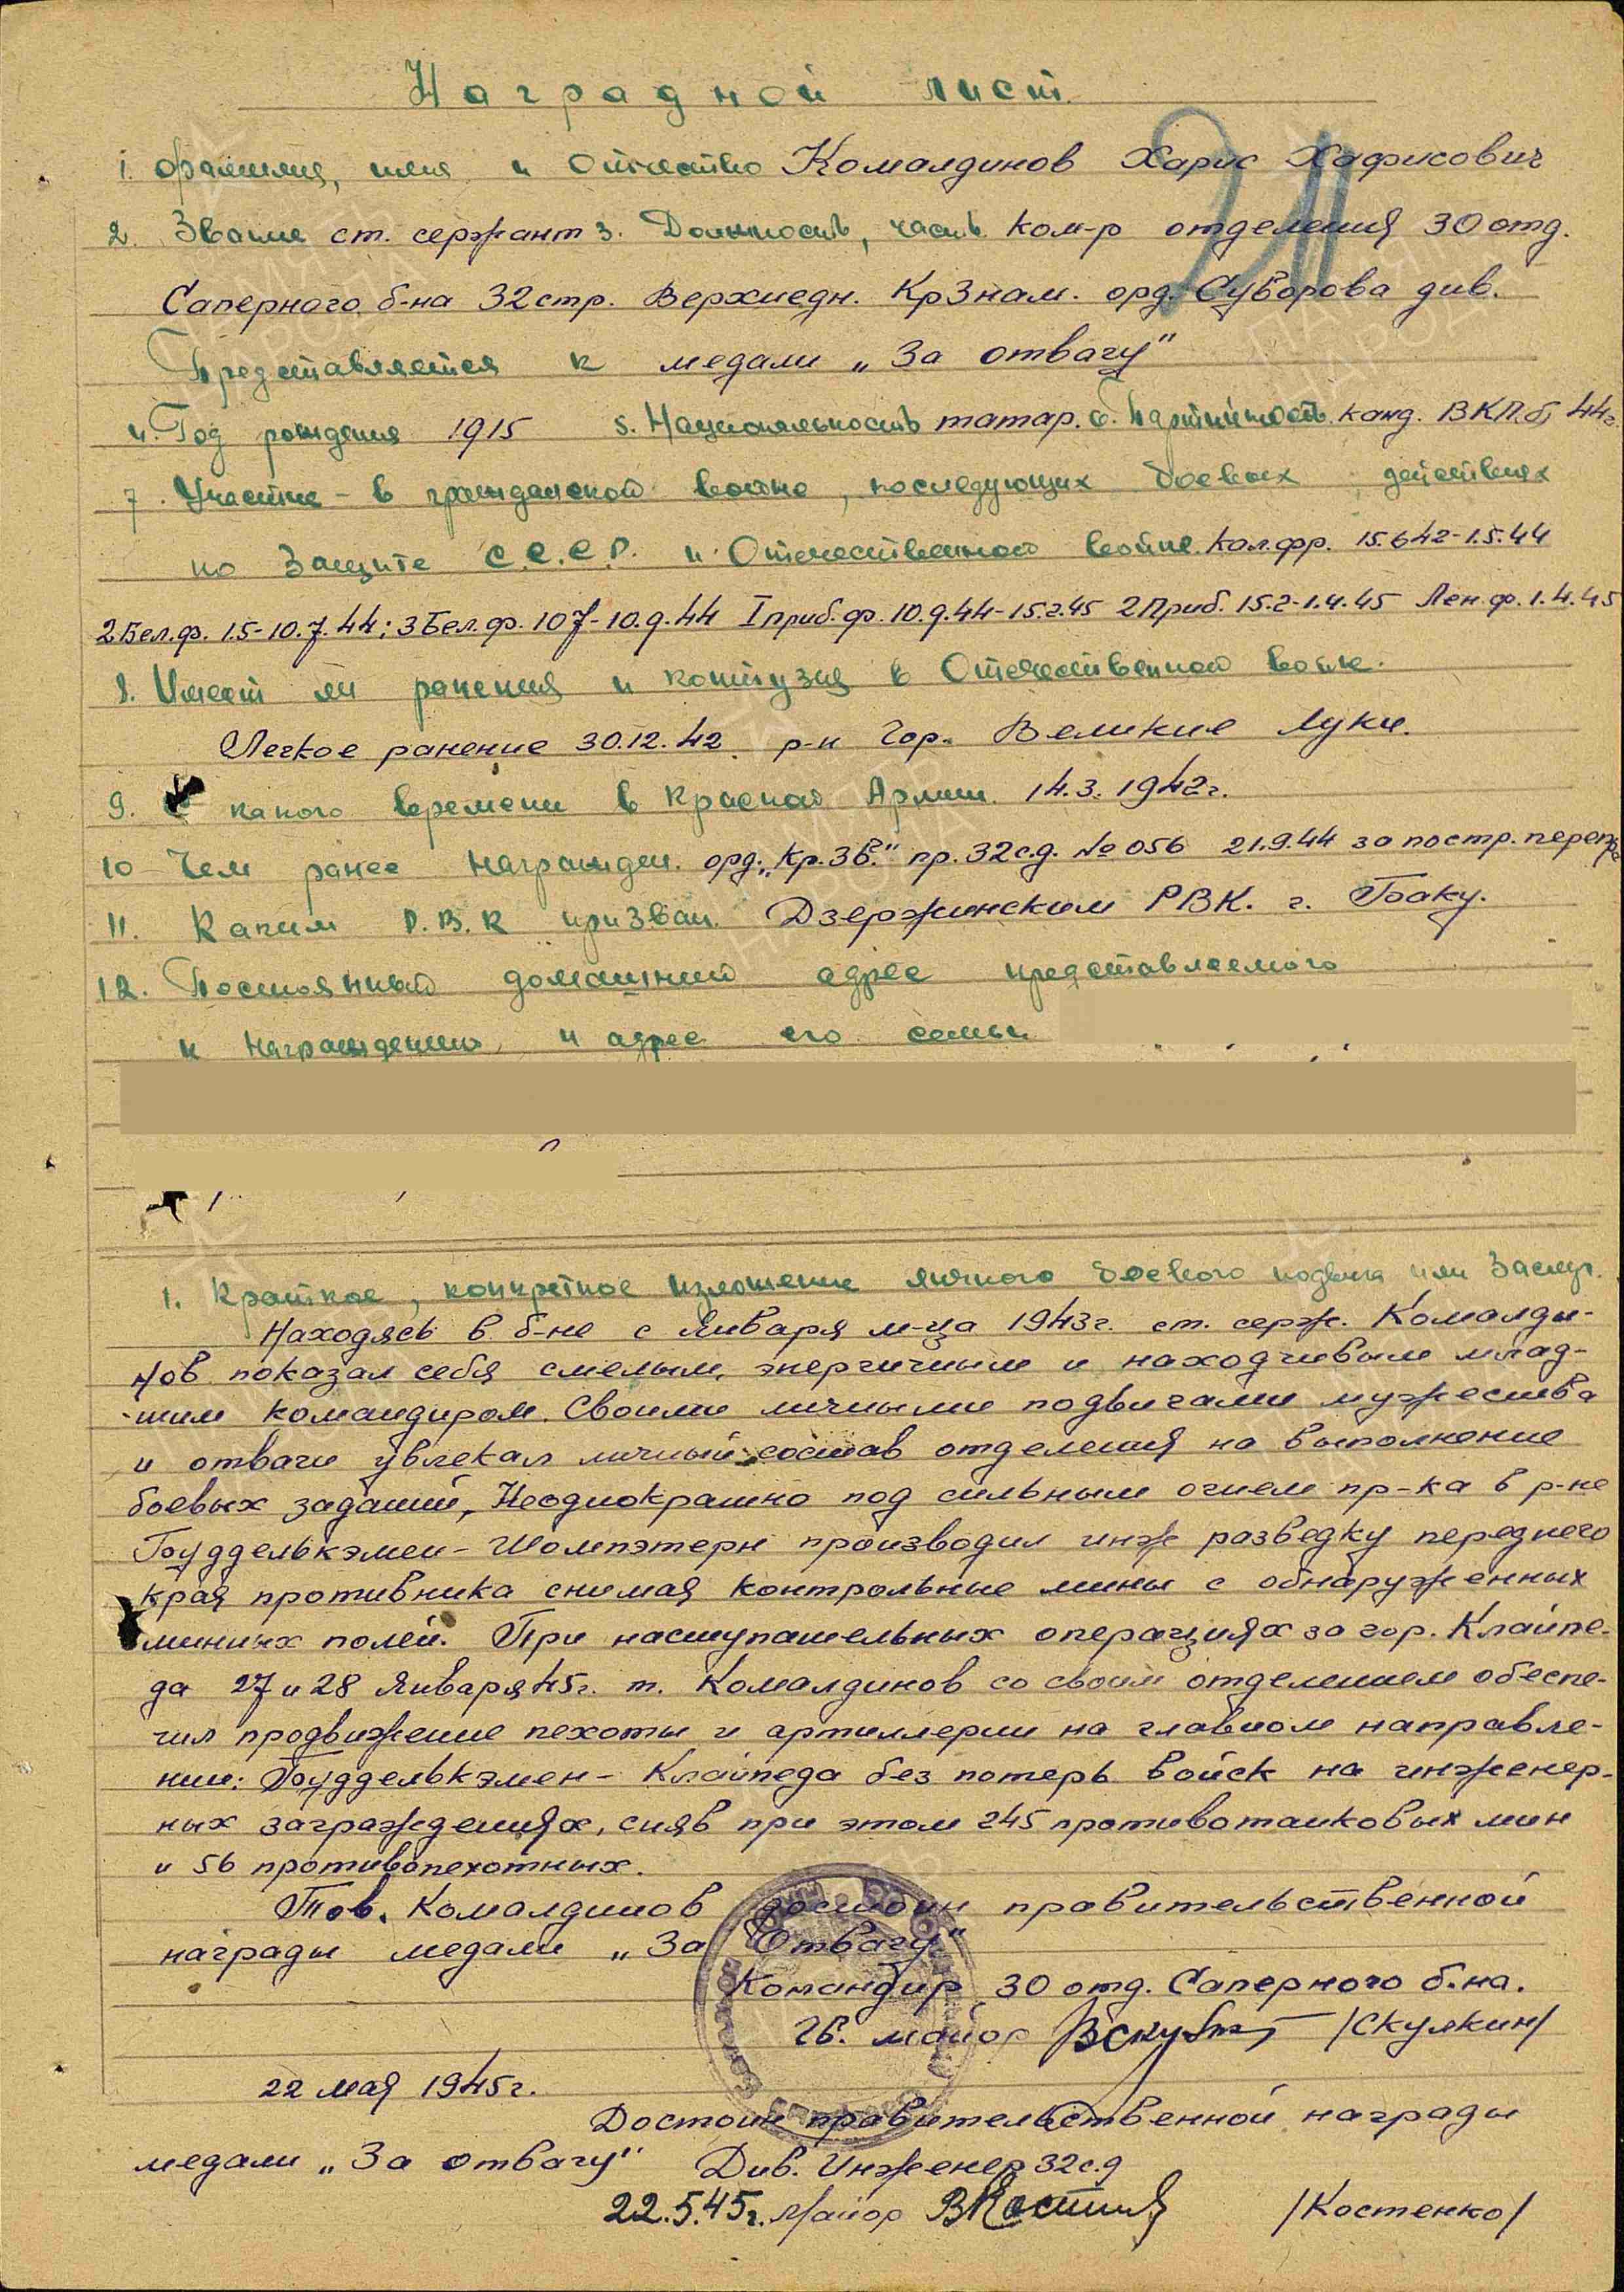 Наградной лист
1. Фамилия, имя и Отчество Комалдинов Харис Хафисович
2. Звание ст. сержант 3. Должность, часть ком-р отделения 30 отд.
Саперного б-на 32 стр. Верхнедн. КрЗнам. орд. Суворова див.
Представляется к медали „За отвагу"
4. Год рождения 1915 5. Национальность татар. 6. Партийность канд. ВКП.б) 44г.
7. Участие - в гражданской войне, последующих боевых действиях
по защите С.С.С.Р. и Отечественной войне. Кал.фр. 15.6 42-1.5.44
2 Бел.ф. 1.5-10.7.44; 3 Бел.ф. 10 7-10.9.44 I приб.ф. 10.9.44-15.2.45 2 Приб. 15.2-1.4.45 Лен.ф. 1.4.45
8. Имеет ли ранения и контузия в Отечественной войне.
Легкое ранение 30.12.42. р-н Гор. Великие Луки.
9. С какого времени в Красной Армии. 14.3.1942г.
10 Чем ранее награжден. орд. „Кр.Зв." пр. 32с.д. № 056 21.9.44 за постр. перепр
11. Каким Р.В.К призван. Дзержинским РВК. г. Баку.
12. Постоянный домашний адрес представляемого
к награждению, и адрес его семьи
1. Краткое, конкретное изложение личного боевого подвига или Заслуг.
Находясь в б-не с января м-ца 1943г. ст. серж. Комалди-
нов показал себя смелым, энергичным и находчивым млад-
шим командиром. Своими личными подвигами мужества
и отваги увлекал личный состав отделения на выполнение
боевых заданий, Неоднократно под сильным огнем пр-ка в р-не
Буддделькэмен - Шомпэтерн производил инж разведку переднего
края противника снимая контрольные мины с обнаруженных
минных полей. При наступательных операциях за гор. Клайпе-
да 27 и 28 января 45г. т. Комалдинов со своим отделением обеспе-
чил продвижение пехоты и артиллерии на главном направле-
нии: Буддделькэмен - Клайпеда без потерь войск на инженер-
ных заграждениях, сняв при этом 245 противотанковых мин
и 56 противопехотных.
Тов. Комалдинов достоин правительственной
награды медали „За Отвагу"
Командир 30 отд. Саперного б-на.
Гв. майор /Скулкин/
22 мая 1945г.
Достоин правительственной награды
медали „За отвагу" Див. Инженер 32с.д
22.5.45г. Майор /Костенко/